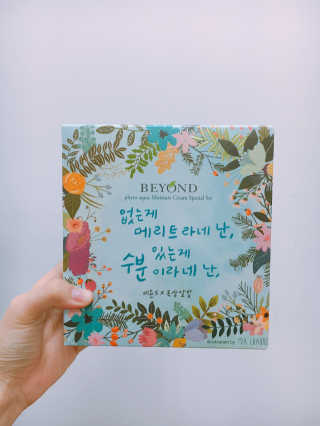 BEYOND
phyto aqua Moisture Cream Special Set
없는게
메리트라네 난,
있는게
수분 이라네 난,
비욘드 X 옥상달빛
illustration by MIA CHARRO